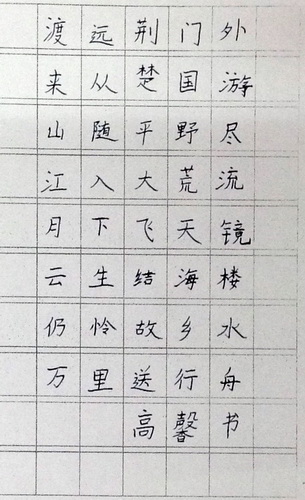 渡远荆门外
来从楚国游
山随平野尽
江入大荒流
月下飞天镜
云生结海楼
仍怜故乡水
万里送行舟
高馨书